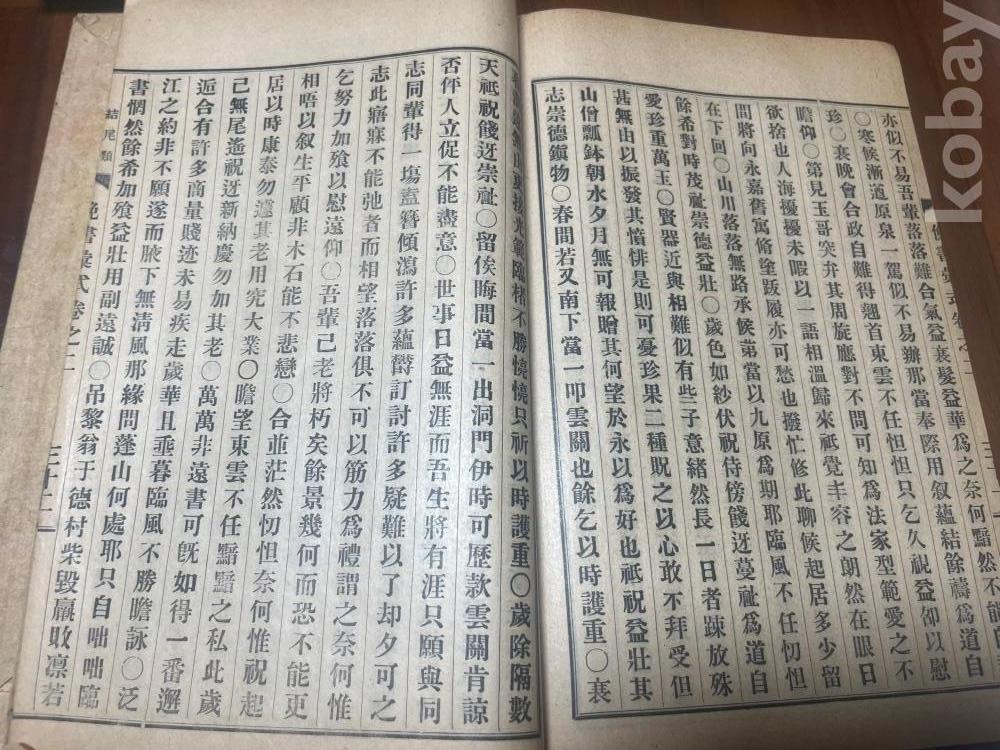 亦似不易吾輩落落難合氣益衰髮益華爲之奈何黯然不能
○寒候漸逼原泉一駕似不易辦那當奉際用叙蘊結餘禱爲道自
珍○衰晩會合政自難得翹首東雲不任怛怛只乞久視益卲以慰
瞻仰○第見玉哥突弁其周旋應對不問可知爲法家型範愛之不
欲捨也人海擾擾未暇以一語相溫歸來祗覺丰容之朗然在眼日
間將向永嘉舊寓脩塗跋履亦可愁也撥忙修此聊候起居多少留
在下回○山川落落無路承候弟當以九原爲期耶臨風不任忉怛
餘希對時茂祉崇德益壯○歲色如紗伏祝侍傍餞迓蔓祉爲道自
愛珍重萬玉○賢器近與相難似有些子意緖然長一日者踈放殊
甚無由以振發其憤悱是則可憂珍果二種貺之以心敢不拜受但
山僧瓢鉢朝水夕月無可報贈其何望於永以爲好也祗祝益壯其
志崇德鎭物○春間若又南下當一叩雲關也餘乞以時護重○衰
光範臨楮不勝憢憢只祈以時護重○歲除隔數
天祗祝餞迓崇祉○留俟晦間當一出洞門伊時可歷款雲關肯諒
否伻人立促不能盡意○世事日益無涯而吾生將有涯只願與同
志同輩得一塲蓋簪傾瀉許多蘊欝訂討許多疑難以了却夕可之
志此寤寐不能弛者而相望落落俱不可以筋力爲禮謂之奈何惟
乞努力加飱以慰遠仰○吾輩己老將朽矣餘景幾何而恐不能更
相唔以叙生平顧非木石能不悲戀○合並茫然忉怛奈何惟祝起
居以時康泰勿遽其老用究大業○瞻望東雲不任黯黯之私此歲
己無尾遙祝迓新納慶勿加其老○萬萬非遠書可旣如得一番邂
逅合有許多商量賤迹未易疾走歲華且垂暮臨風不勝瞻詠○泛
江之約非不願遂而腋下無淸風那緣問蓬山何處耶只自咄咄臨
書惘然餘希加飱益壯用副遠誠○吊黎翁于德村柴毁羸敗凛若
結尾類 晩書彙式卷之二 三十二